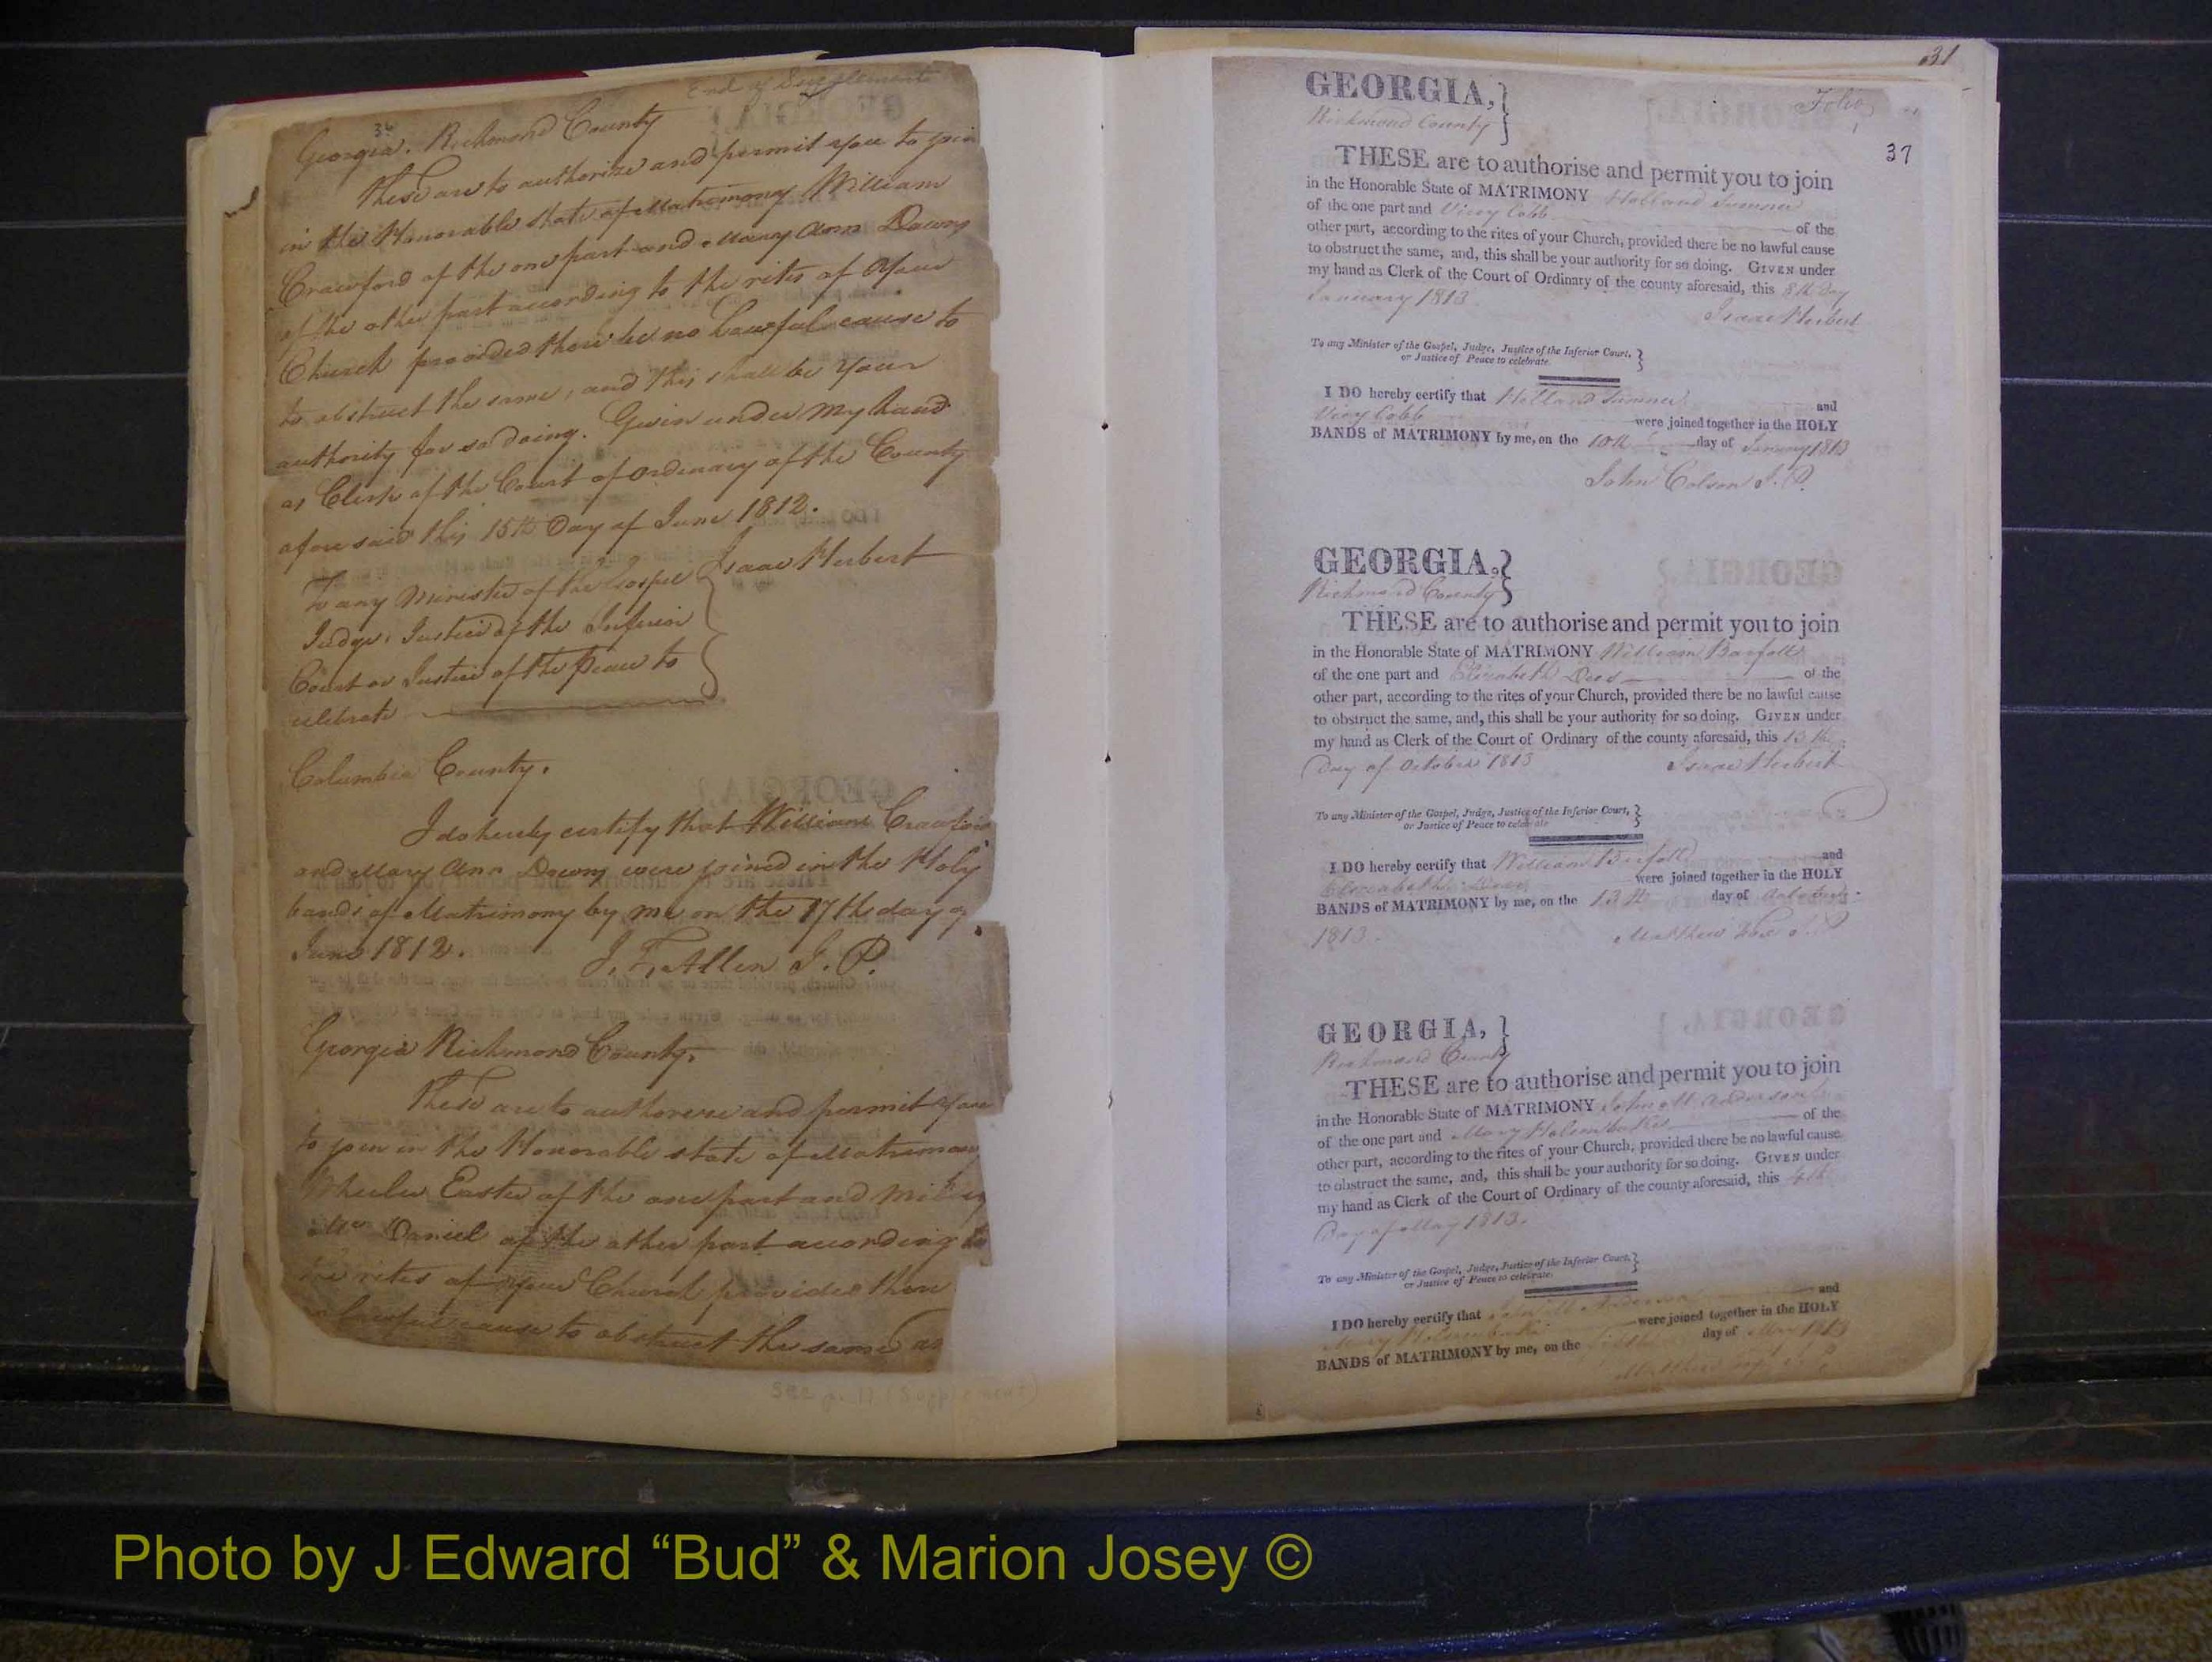 End of Supplement
36
Georgia. Richmond County
These are to authorize and permit you to join
in the Honorable State of Matrimony William
Crawford of the one part and Mary Ann Downs
of the other part according to the rites of Your
Church provided there be no Lawful cause to
to obstruct the same, and this shall be Your
authority for so doing. Given under my hand
as Clerk of the Court of Ordinary of the County
afore said this 15th Day of June 1812.
To any Minister of the Gospel
Isaac Herbert
Judge, Justice of the Inferior
Court or Justice of the Peace to
celebrate
Columbia County.
I do hereby certify that William Crawford
and Mary Ann Downs were joined in the Holy
bands of Matrimony by me on the 17th day of
June 1812.
J. F. Allen J. P.
Georgia Richmond County.
These are to authorize and permit you
to join in the Honorable state of Matrimony
Wheeler Easter of the one part and
Mc Daniel of the other part according to
the rites of your Church provided there
lawful cause to obstruct the same as
See p. 17 (Supplement)
31
Folio
1
37
GEORGIA,
Richmond County
THESE are to authorise and permit you to join
in the Honorable State of MATRIMONY Holland Sumner
of the one part and Vicey Cobb of the
other part, according to the rites of your Church, provided there be no lawful cause
to obstruct the same, and, this shall be your authority for so doing. GIVEN under
my hand as Clerk of the Court of Ordinary of the county aforesaid, this 8th Day
January 1813.
Isaac Herbert
To any Minister of the Gospel, Judge, Justice of the Inferior Court,
or Justice of Peace to celebrate.
I DO hereby certify that Holland Sumner and
Vicey Cobb were joined together in the HOLY
BANDS of MATRIMONY by me, on the 10th day of January 1813
John Colson J. P.
GEORGIA,
Richmond County
THESE are to authorise and permit you to join
in the Honorable State of MATRIMONY William Barfoll
of the one part and Elizabeth Dees of the
other part, according to the rites of your Church, provided there be no lawful cause
to obstruct the same, and, this shall be your authority for so doing. GIVEN under
my hand as Clerk of the Court of Ordinary of the county aforesaid, this 13th
Day of October 1813
Isaac Herbert
To any Minister of the Gospel, Judge, Justice of the Inferior Court,
or Justice of Peace to celebrate
I DO hereby certify that William and
Elizabeth were joined together in the HOLY
BANDS of MATRIMONY by me, on the 13th day of October
1813.
Matthew J. P.
GEORGIA,
Richmond County
THESE are to authorise and permit you to join
in the Honorable State of MATRIMONY John M Anderson
of the one part and Mary of the
other part, according to the rites of your Church, provided there be no lawful cause
to obstruct the same, and, this shall be your authority for so doing. GIVEN under
my hand as Clerk of the Court of Ordinary of the county aforesaid, this 4th
Day of May 1813.
To any Minister of the Gospel, Judge, Justice of the Inferior Court,
or Justice of Peace to celebrate.
I DO hereby certify that John M Anderson and
Mary were joined together in the HOLY
BANDS of MATRIMONY by me, on the day of May 1813
Matthew
Photo by J Edward “Bud” & Marion Josey ©